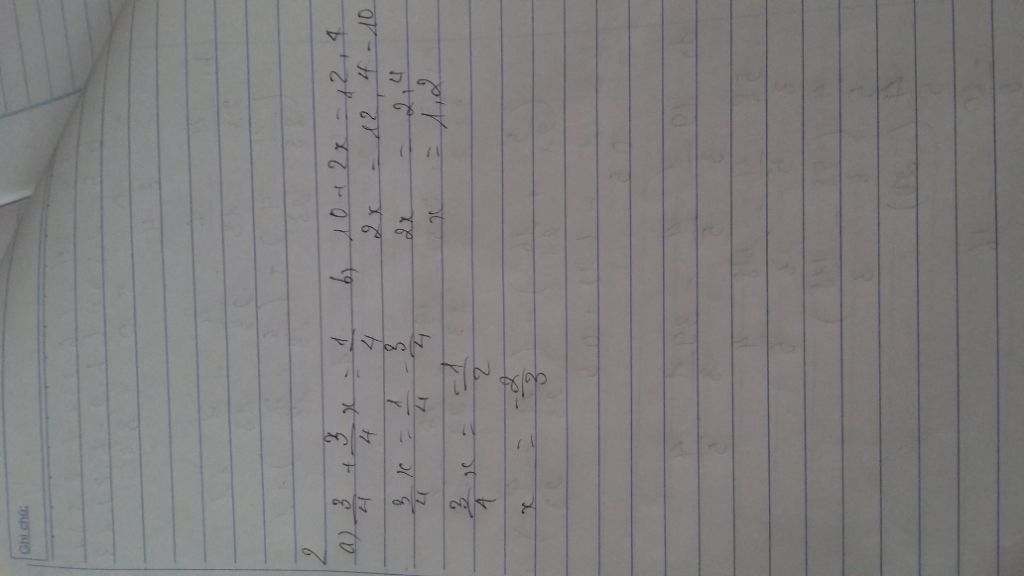 Ghi chú:
2
a) 3/4 + 3/4 x = 1/4
3/4 x = 1/4 - 3/4
3/4 x = -1/2
x = -2/3
b) 10 + 2x = 12,4
2x = 12,4 - 10
2x = 2,4
x = 1,2